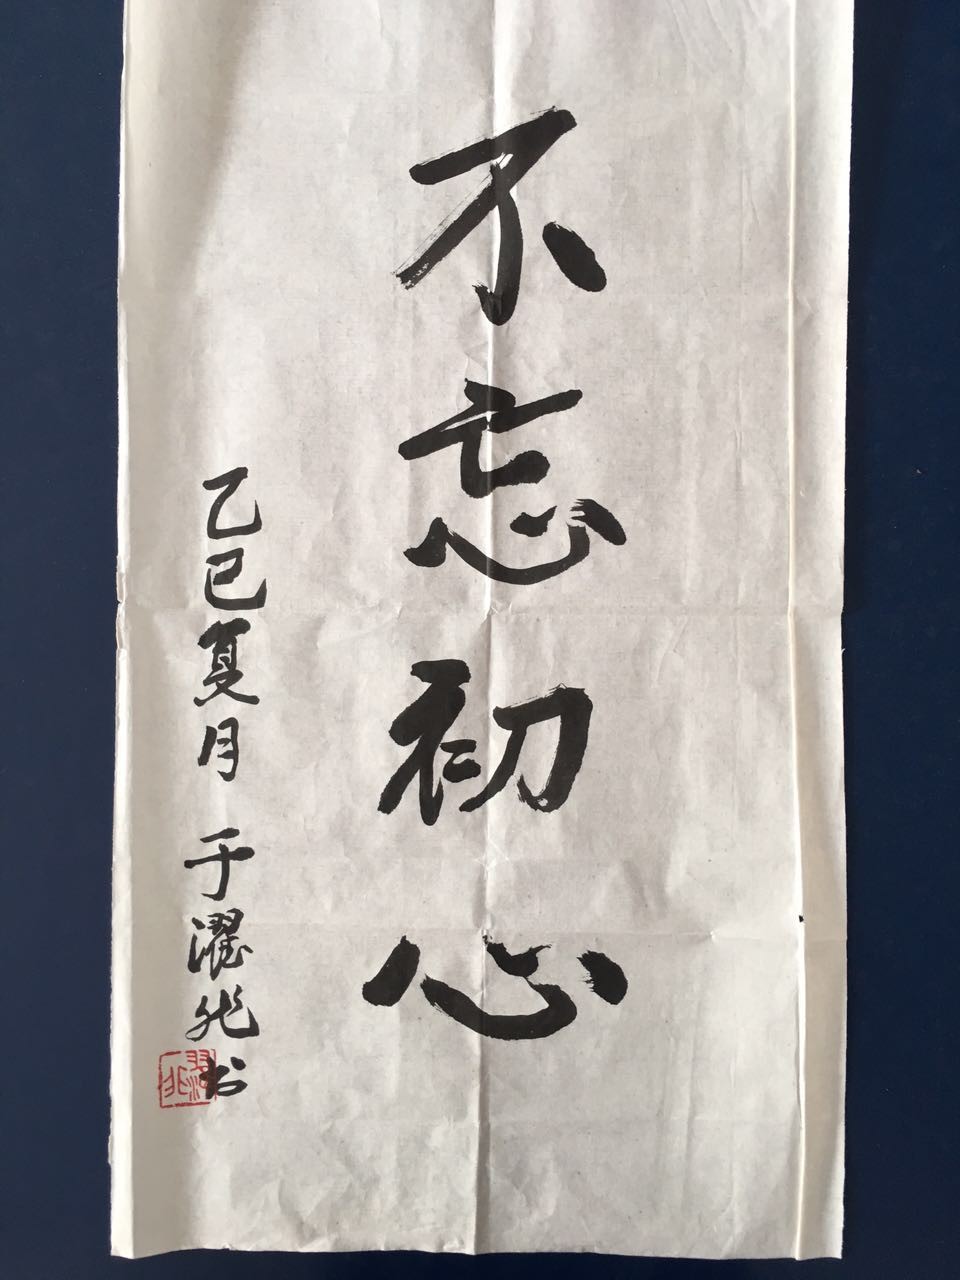 不忘初心
乙巳夏月 于濯非书